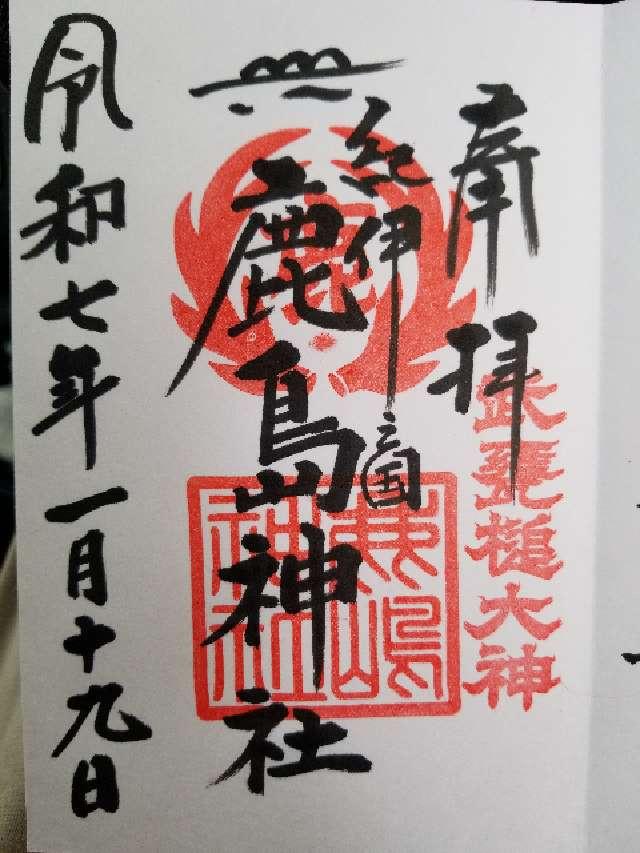 奉拝
武甕槌大神
紀伊
三国
鹿島神社
鹿嶋神社
令和七年一月十九日